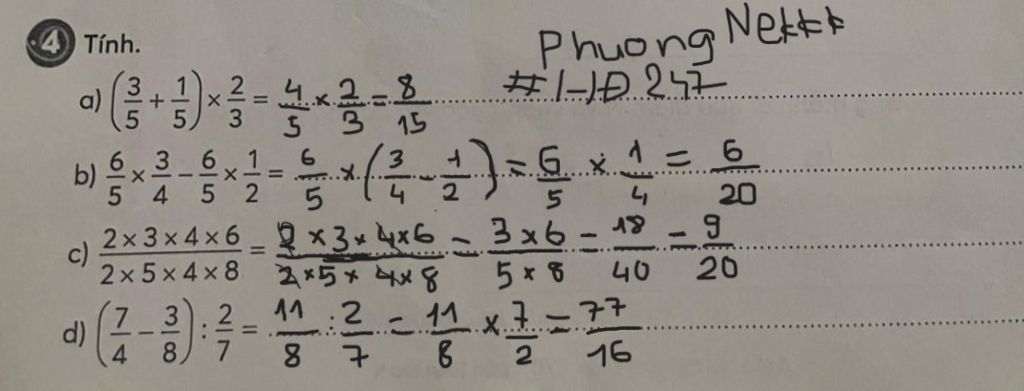 4 Tính.
Phuong Nekkk
#HĐ247
a) (3/5 + 1/5) × 2/3 = 4/5 × 2/3 = 8/15
b) 6/5 × 3/4 - 6/5 × 1/2 = 6/5 × (3/4 - 1/2) = 6/5 × 1/4 = 6/20
c) 2 × 3 × 4 × 6 / 2 × 5 × 4 × 8 = 2 × 3 × 4 × 6 / 2 × 5 × 4 × 8 = 3 × 6 / 5 × 8 = 18/40 = 9/20
d) (7/4 - 3/8) : 2/7 = 11/8 : 2/7 = 11/8 × 7/2 = 77/16